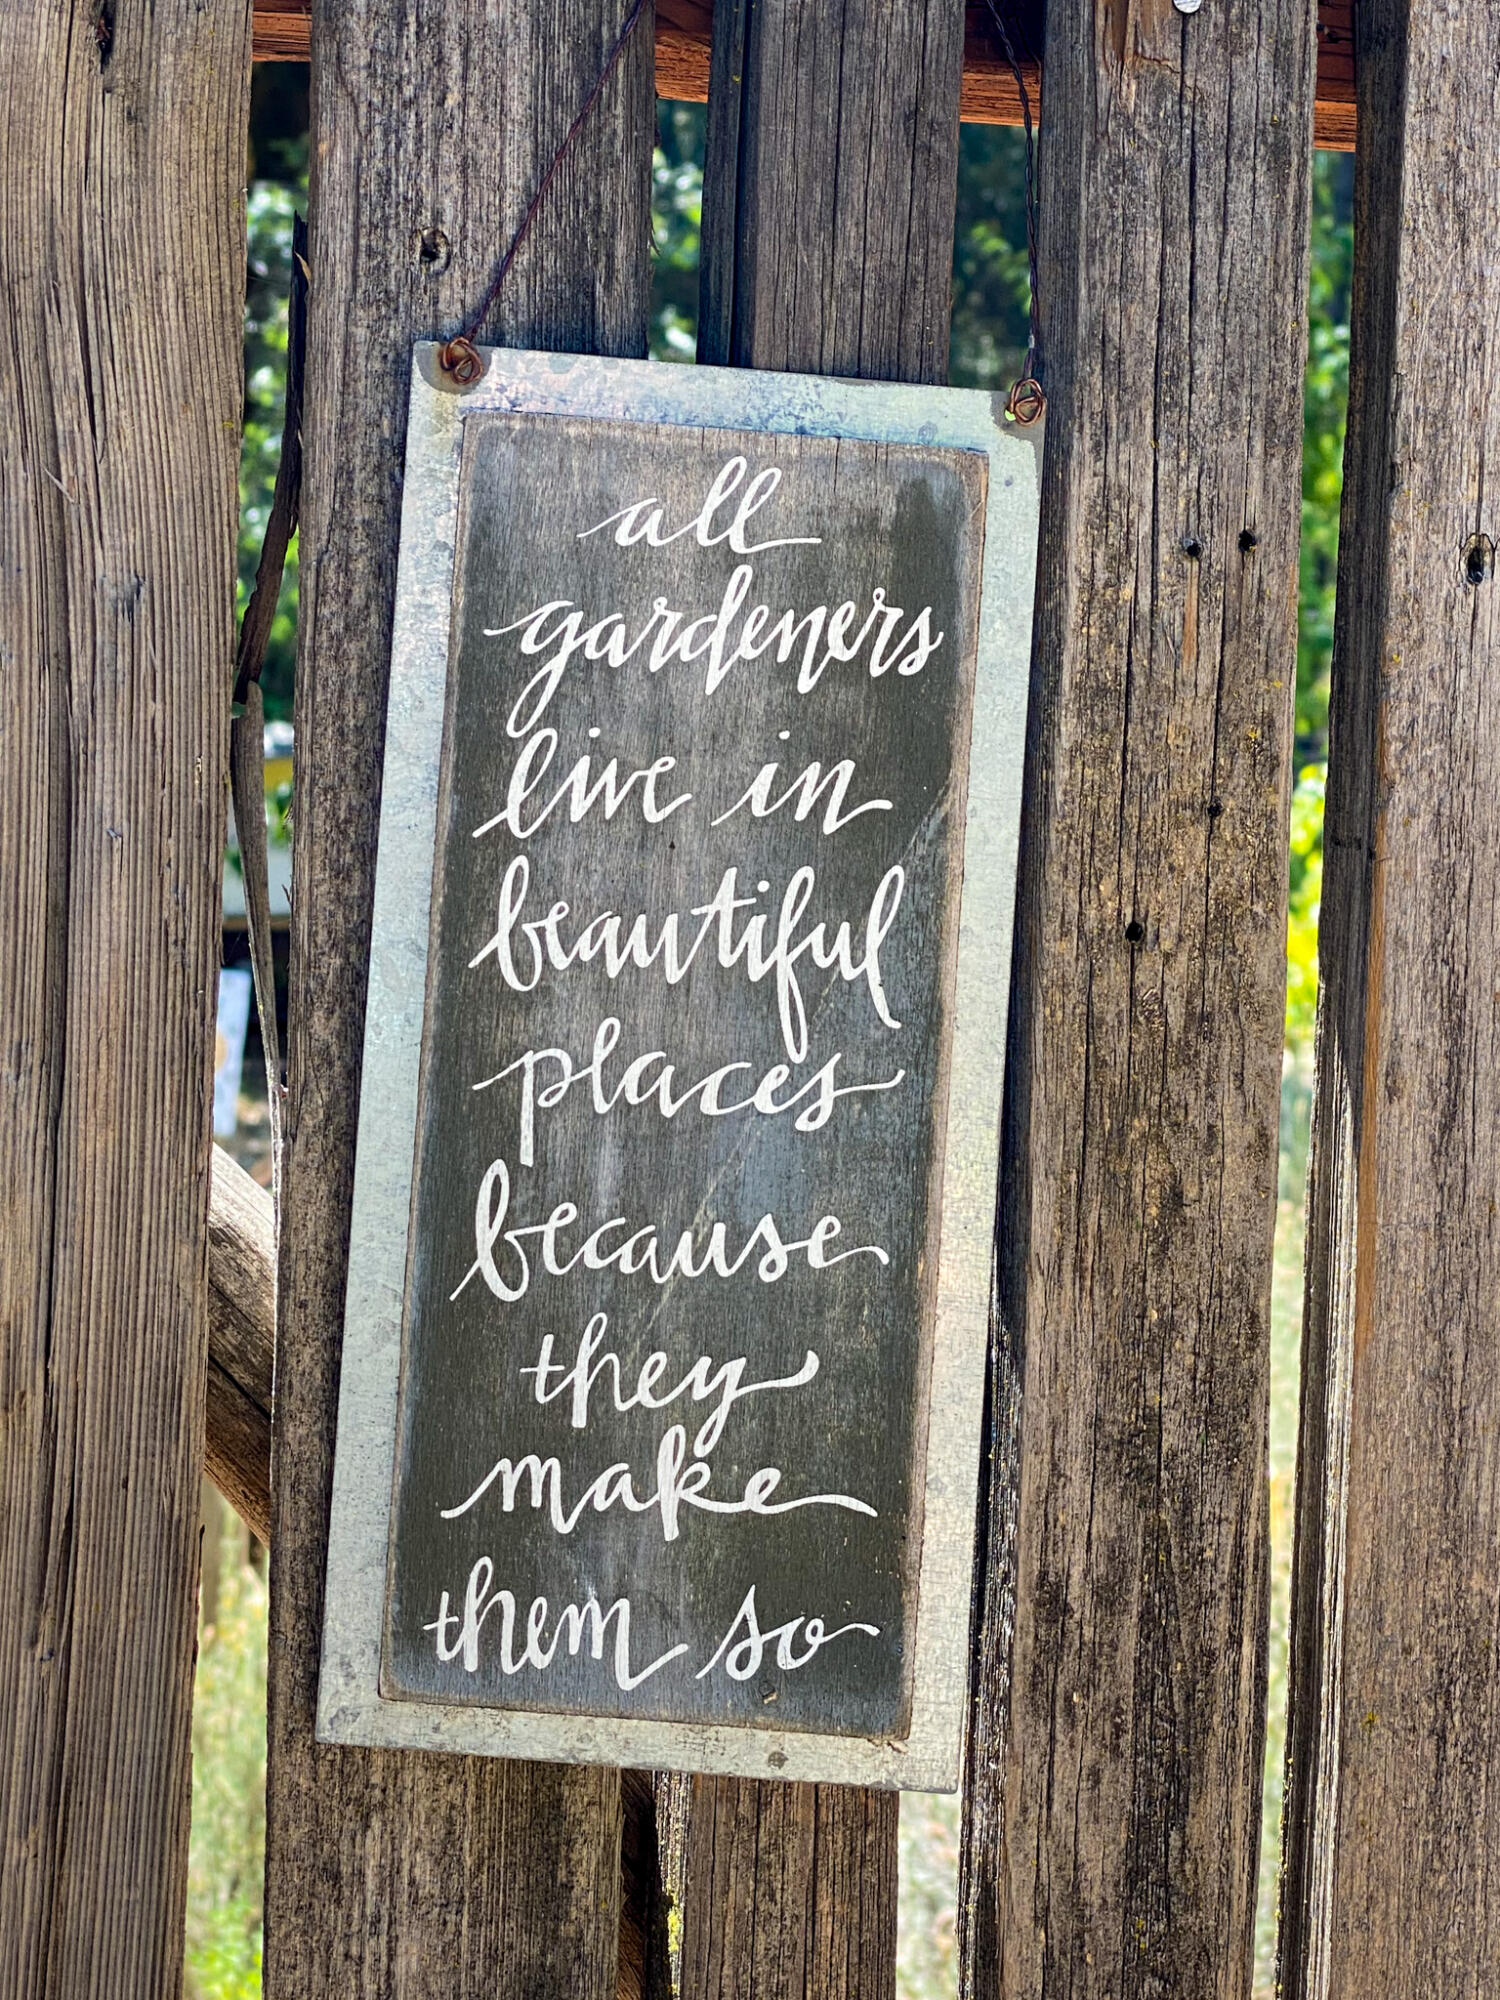 all
gardeners
live in
beautiful
places
because
they
make
them so